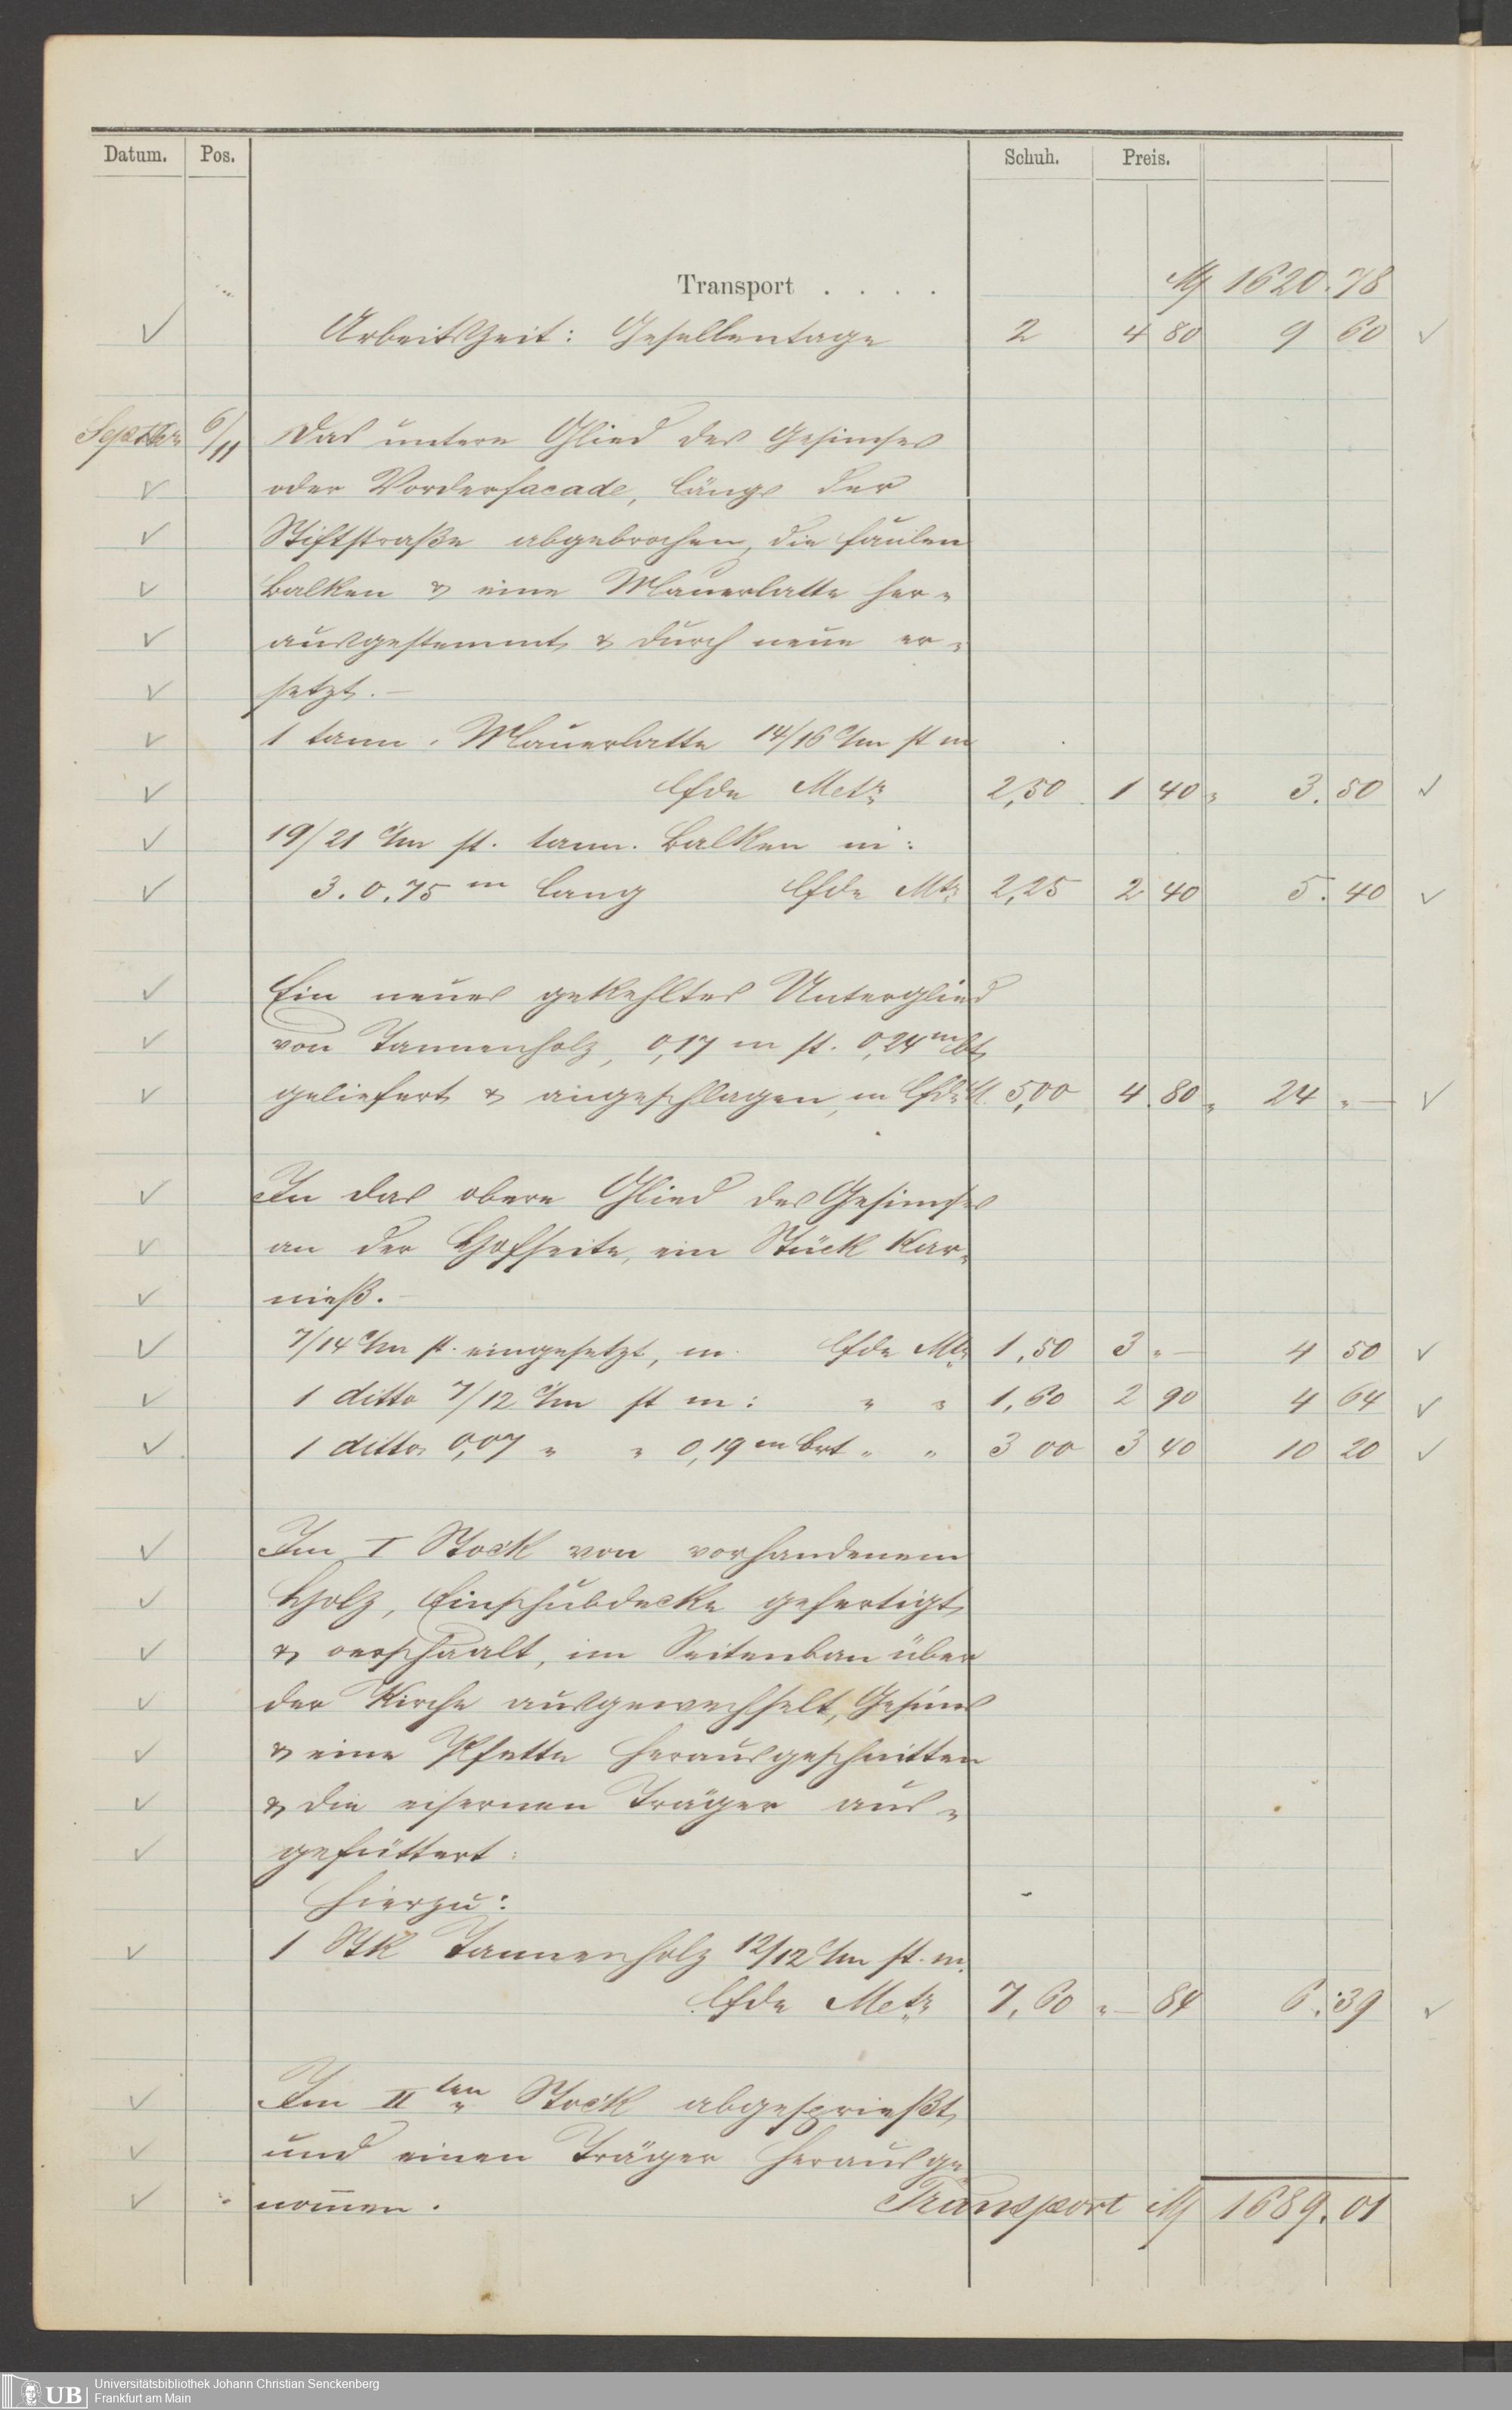 Datum. Pos. Schuh. Preis.
Transport . . . . M 1620.78
Arbeitszeit: Gesellentage 2 4 80 9 60
Septbr 6/11 Das untere Glied des Gesimses
oder Vorderfacade, längs der
Stiftstraße abgebrochen, die faulen
Balken & eine Mauerlatte her-
ausgestemmt & durch neue er-
setzt. —
1 tann. Mauerlatte 14/16 c/m st m
lfde Metr 2,50 1 40 " 3. 50
19/21 c/m st. tann. Balken m:
3. 0.75 m lang lfde Mtr 2,25 2 40 5. 40
Ein neues gekehltes Unterglied
von Tannenholz, 0,17 m st. 0,24 m bt
geliefert & angeschlagen, m lfde M. 5,00 4.80 " 24 " —
In das obere Glied des Gesimses
an der Hofseite, ein Stück Kar-
nieß. —
7/14 c/m st. eingesetzt, m. lfde Mtr 1,50 3 " — 4 50
1 ditto 7/12 c/m st m: " " 1,60 2 90 4 64
1 ditto 0,07 " " 0,19 m brt " " 3 00 3 40 10 20
Im I Stock von vorhandenem
Holz, Einschubdecke gefertigt
& verschaalt, im Seitenbau über
der Kirche ausgewechselt, Gesims
& eine Pfette herausgeschnitten
& die eisernen Träger aus-
gefüttert:
Hierzu:
1 Stk Tannenholz 12/12 c/m st. m.
lfde Metr 7,60 " — 84 6. 39
Im II ten Stock abgesprießt
und einen Träger herausge-
nomen. Transport M 1689.01
Universitätsbibliothek Johann Christian Senckenberg
Frankfurt am Main
UB